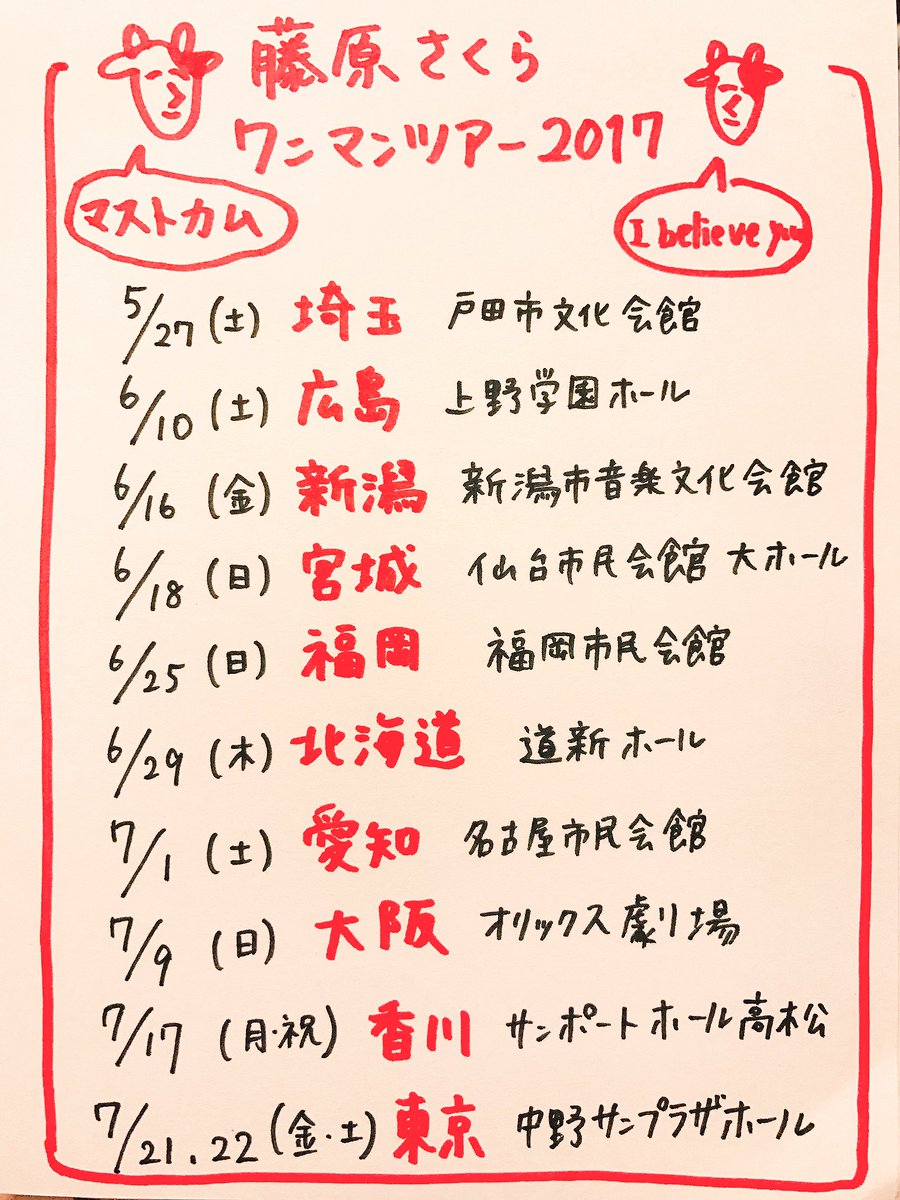 藤原さくら
ワンマンツアー2017
マストカム
I believe you
5/27(土) 埼玉 戸田市文化会館
6/10(土) 広島 上野学園ホール
6/16(金) 新潟 新潟市音楽文化会館
6/18(日) 宮城 仙台市民会館 大ホール
6/25(日) 福岡 福岡市民会館
6/29(木) 北海道 道新ホール
7/1(土) 愛知 名古屋市民会館
7/9(日) 大阪 オリックス劇場
7/17(月・祝) 香川 サンポートホール高松
7/21.22(金・土) 東京 中野サンプラザホール